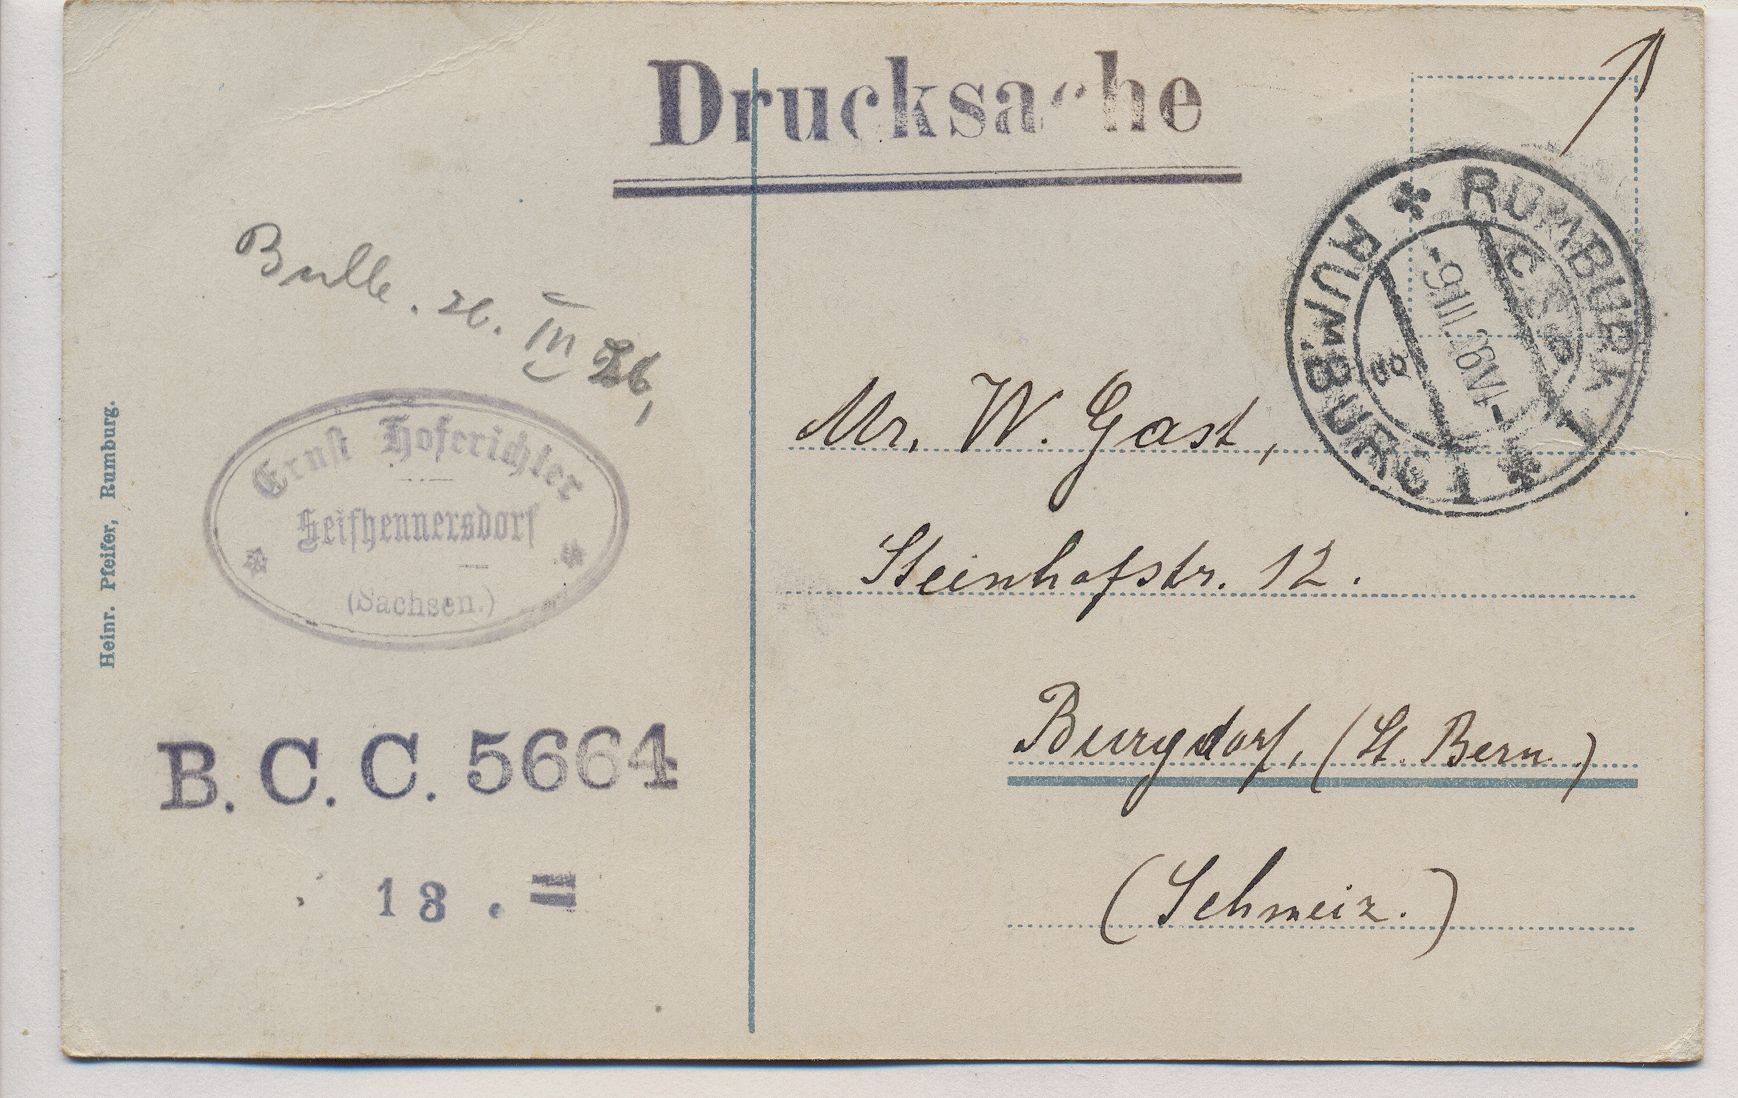 Drucksache
RUMBURK 1
RUMBURG 1
Č.S.R.
-9.III.26 VI-
Bulle. 26. III 26,
Ernst Hoferichter
Seifhennersdorf
(Sachsen.)
Heinr. Pfeifer, Rumburg.
B. C. C. 5664
Mr. W. Gast,
Steinhofstr. 12.
Burgdorf, (Kt. Bern.)
(Schweiz.)